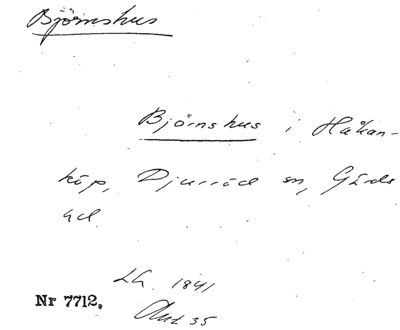 Björnshus
Björnshus i Håkan-
köp, Djurröd sn, Gärds
hd.
LA 1841
Nr 7712.
Akt 35